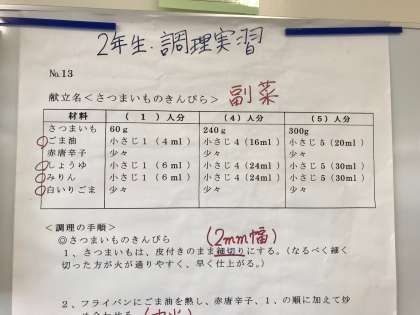 2年生・調理実習
No.13
献立名<さつまいものきんぴら> 副菜
材料 (1)人分 (4)人分 (5)人分
さつまいも 60g 240g 300g
ごま油 小さじ1(4ml) 小さじ4(16ml) 小さじ5(20ml)
赤唐辛子 少々 少々 少々
しょうゆ 小さじ1(6ml) 小さじ4(24ml) 小さじ5(30ml)
みりん 小さじ1(6ml) 小さじ4(24ml) 小さじ5(30ml)
白いりごま 少々 少々 少々
<調理の手順>
◎さつまいものきんぴら (2mm幅)
1、さつまいもは、皮付きのまま細切りにする。(なるべく細く
切った方が火が通りやすく、早く仕上がる。)
2、フライパンにごま油を熱し、赤唐辛子、1、の順に加えて炒